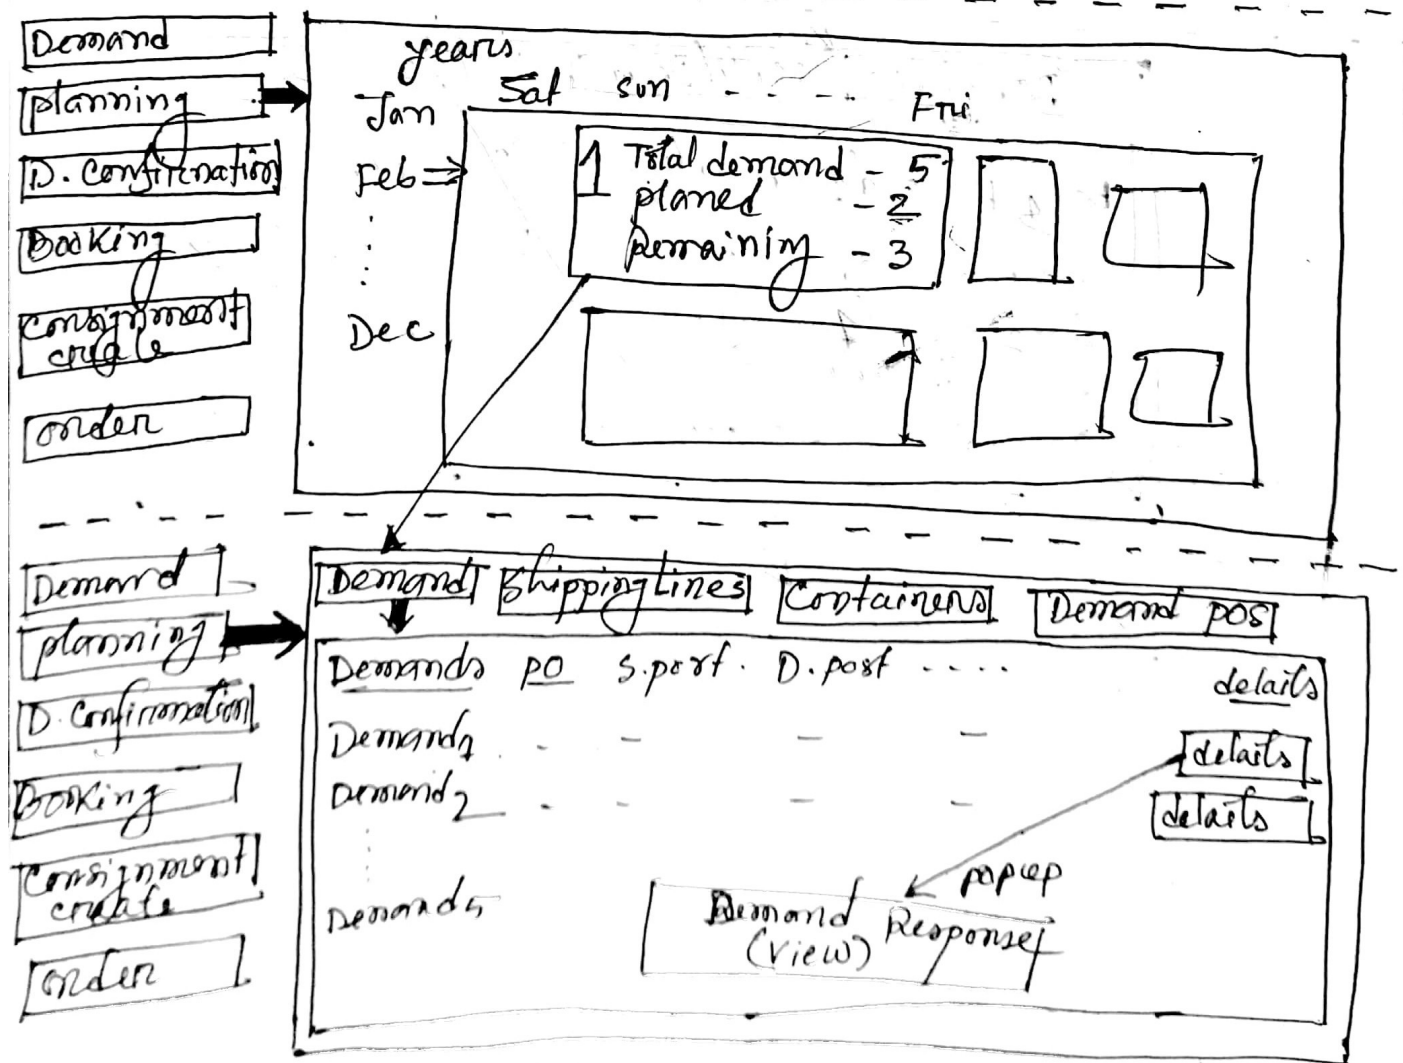 Demand
planning
D. Confirmation
Booking
Consignment
create
order
years
Jan
Feb
Dec
Sat sun - - - - Fri
1 Total demand - 5
planed - 2
Remaining - 3
Demand
planning
D. Confirmation
Booking
Consignment
create
order
Demand Shipping Lines Containers Demand POS
Demands PO S.port. D.port ..... details
Demand1 - - - - details
Demand2 - - - - details
Demand5
popup
Demand Response
(view)